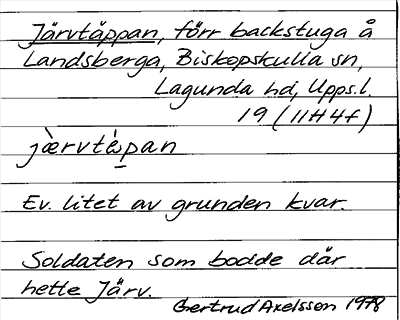 Järvtäppan, förr backstuga å
Landsberga, Biskopskulla sn,
Lagunda hd, Upps.l.
19 (11H4f)
Ev. litet av grunden kvar.
Soldaten som bodde där
hette Järv.
Gertrud Axelsson 1978